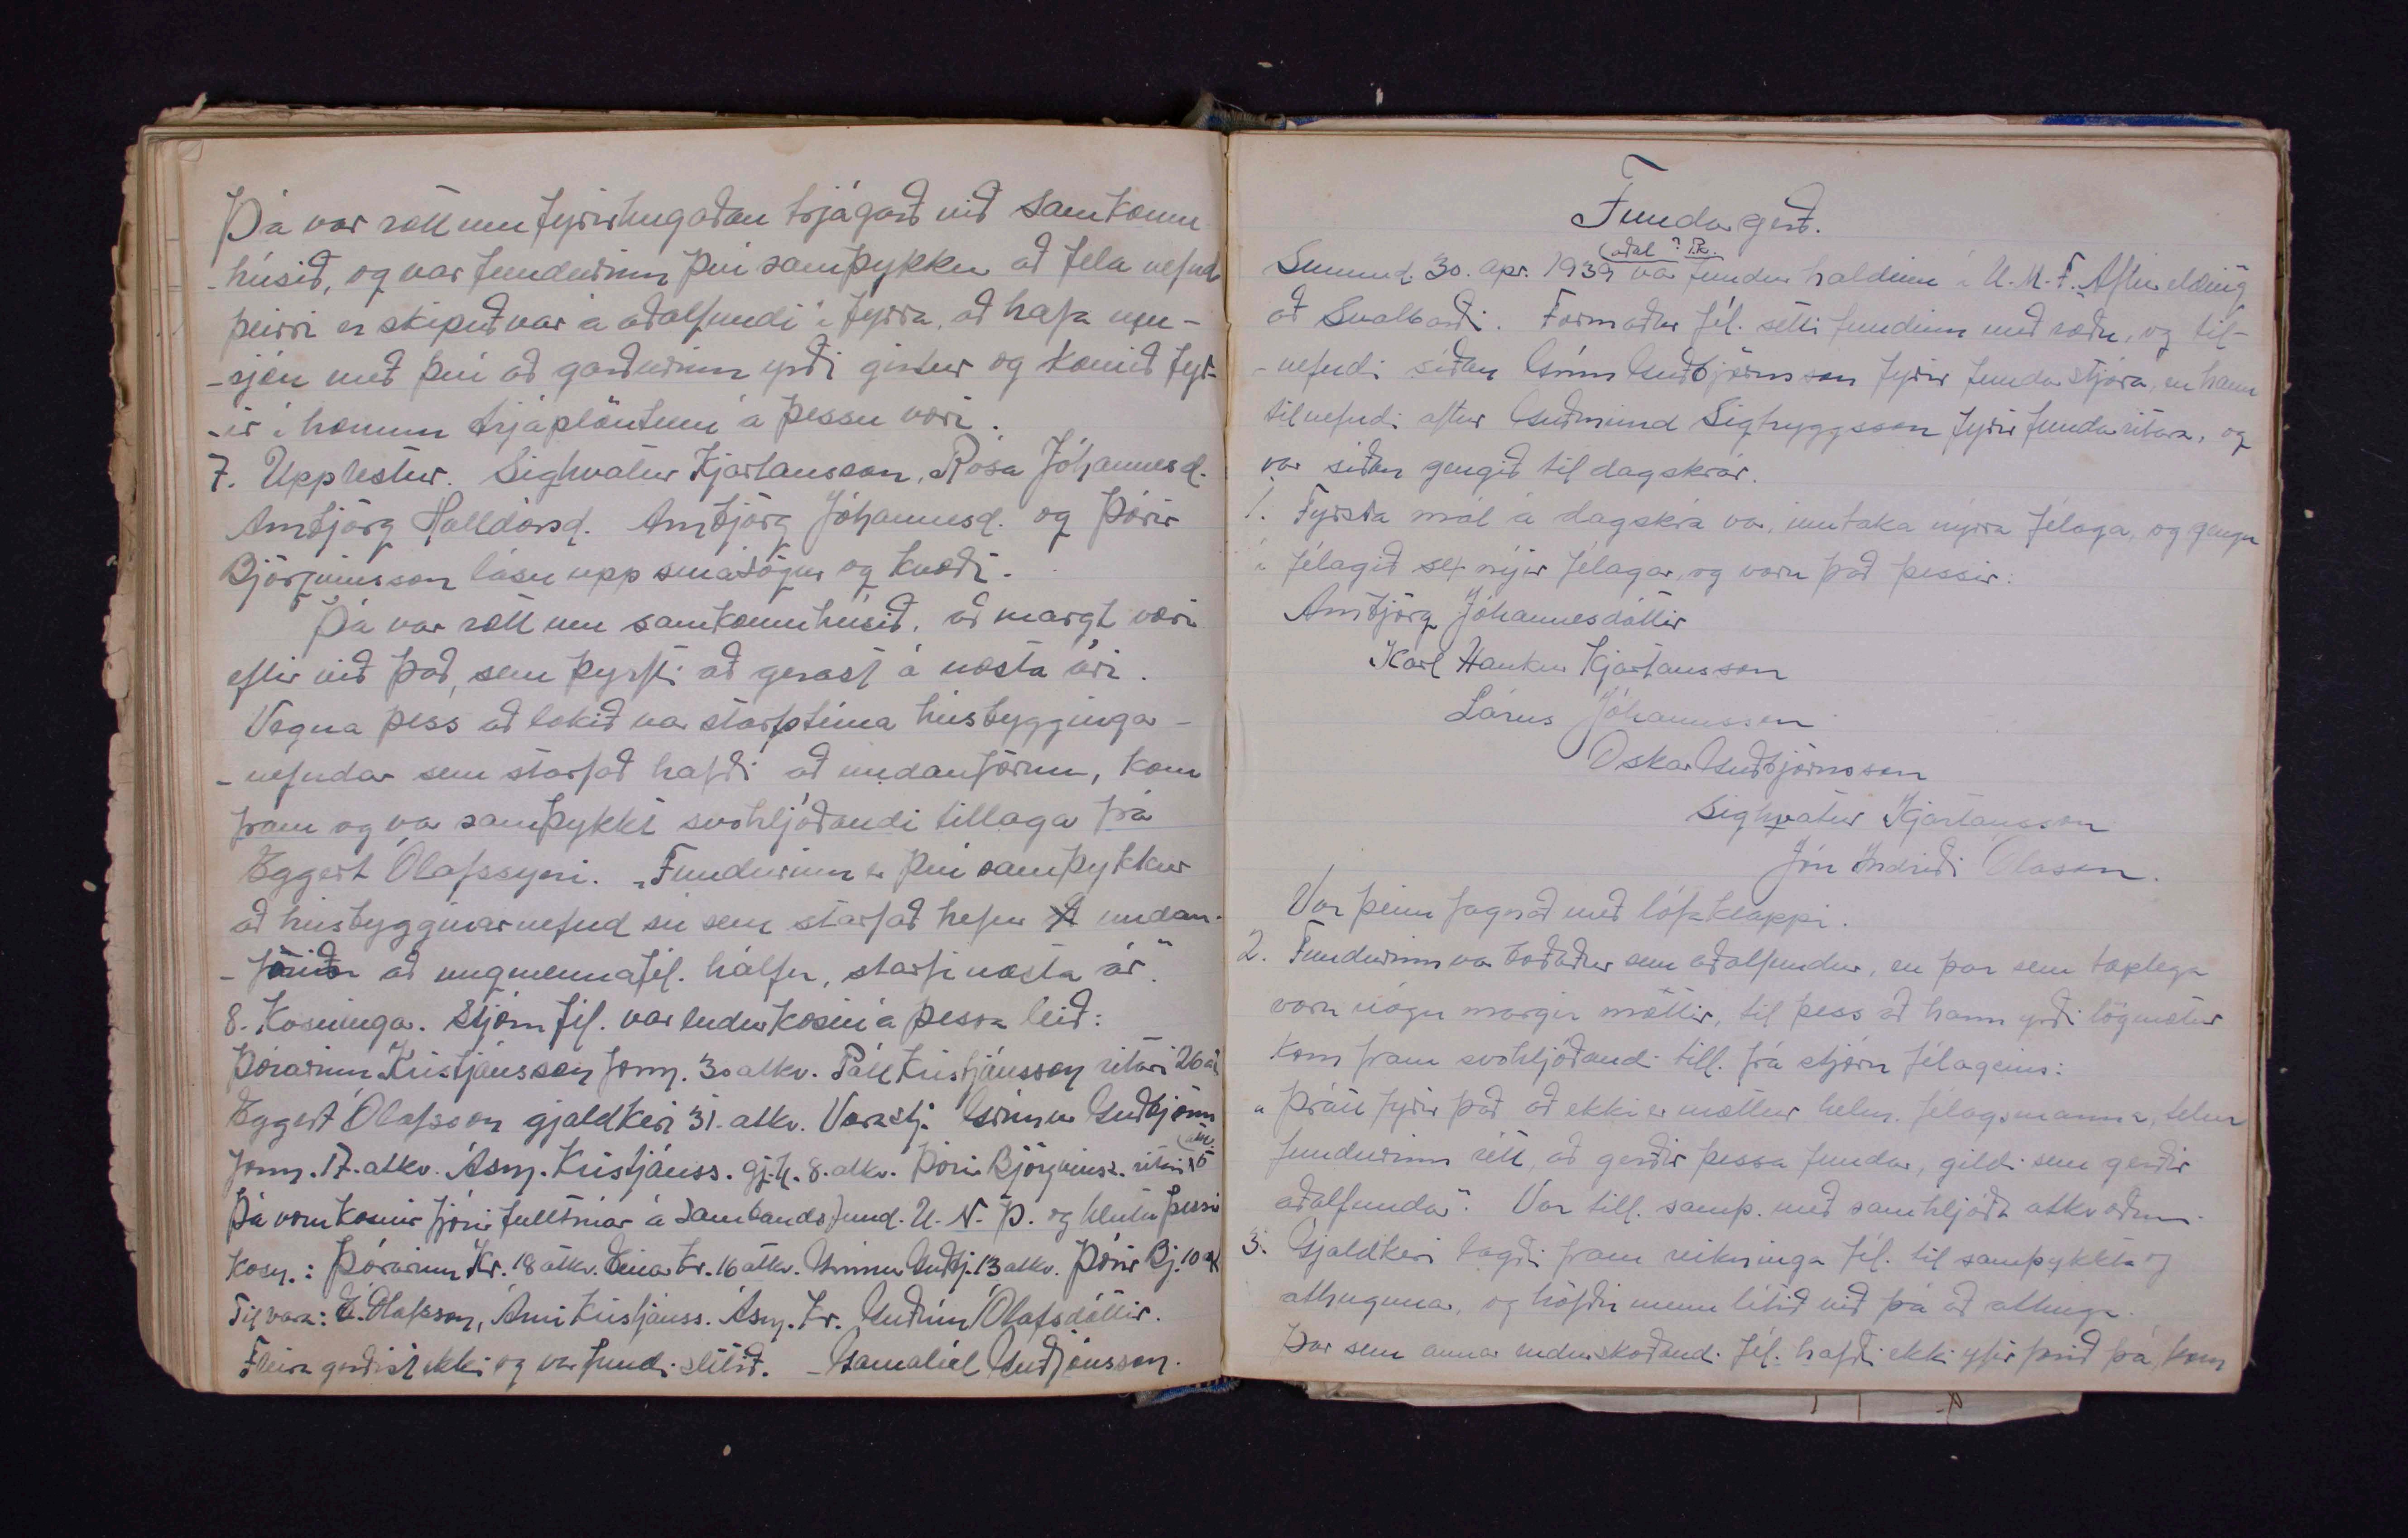 Þá var rætt um fyrirhugaðan trjágarð við samkomu
-húsið, og var fundurinn því samþykkur að fela nefnd
þeirri er skipuð var á aðalfundi í fyrra, að hafa um-
-sjón með því að garðurinn yrði girtur og komið fyr-
-ir í honum trjáplöntum á þessu vori.
7. Upplestur. Sighvatur Kjartansson, Rósa Jóhannesd.
Arnbjörg Halldórsd. Arnbjörg Jóhannesd. og Þórir
Björgvinsson lásu upp smásögur og kvæði.
Þá var rætt um samkomuhúsið, að margt væri
eftir við það, sem þyrfti að gerast á næsta ári.
Vegna þess að lokið var starfstíma húsbygginga-
-nefndar sem starfað hafði að undanförnu, kom
fram og var samþykkt svohljóðandi tillaga frá
Eggert Ólafssyni. „Fundurinn er því samþykkur
að húsbyggingarnefnd sú sem starfað hefur undan-
að ungmennafél. hálfu, starfi næsta ár".
8. Kosningar. Stjórn fél. var endurkosin á þessa leið:
Þórarinn Kristjánsson form. 30 atkv. Páll Kristjánsson ritari 26 at
Eggert Ólafsson gjaldkeri 31. atkv. Varastj. Grímur Guðbjörns
form. 17. atkv. Ásm. Kristjánss. gj.k. 8. atkv. Þórir Björgvinss. ritari 15 atkv.
Þá voru kosnir fjórir fulltrúar á Sambandsfund. U. N. Þ. og hlutu þessir
kosn.: Þórarinn Kr. 18 atkv. Einar Kr. 16 atkv. Grímur Guðbj. 13 atkv. Þórir Bj. 10 at
Til vara: E. Ólafsson, Árni Kristjánss. Ásm. Kr. Guðrún Ólafsdóttir.
Fleira gerðist ekki og var fundi slitið. - Gamalíel Guðjónsson.
Fundargerð.
(aðal? Þ.K.
Sunnud. 30. apr. 1939 var fundur haldinn í U.M.F. Aftureldingu
að Svalbarði. Formaður fél. setti fundinn með ræðu, og til-
-nefndi síðan Grím Guðbjörnsson fyrir fundarstjóra, en hann
tilnefndi aftur Guðmund Sigtryggsson fyrir fundarritara, og
var síðan gengið til dagskrár.
1. Fyrsta mál á dagskrá var, inntaka nýrra félaga, og gengu
í félagið sex nýir félagar, og voru það þessir:
Arnbjörg Jóhannesdóttir
Karl Haukur Kjartansson
Lárus Jóhannsson
Óskar Guðbjörnsson
Sighvatur Kjartansson
Jón Indriði Ólason.
Var þeim fagnað með lófaklappi.
2. Fundurinn var boðaður sem aðalfundur, en þar sem tæplega
voru nógu margir mættir, til þess að hann yrði lögmætur
kom fram svohljóðandi till. frá stjórn félagsins:
„Þrátt fyrir það að ekki er mættur helm. félagsmanna, telur
fundurinn rétt, að gerðir þessa fundar, gildi sem gerðir
aðalfundar". Var till. samþ. með samhljóða atkvæðum.
3. Gjaldkeri lagði fram reikninga fél. til samþykkta og
athugunar, og höfðu menn lítið við þá að athuga.
Þar sem annar endurskoðandi fél. hafði ekki yfirfarið þá, kom